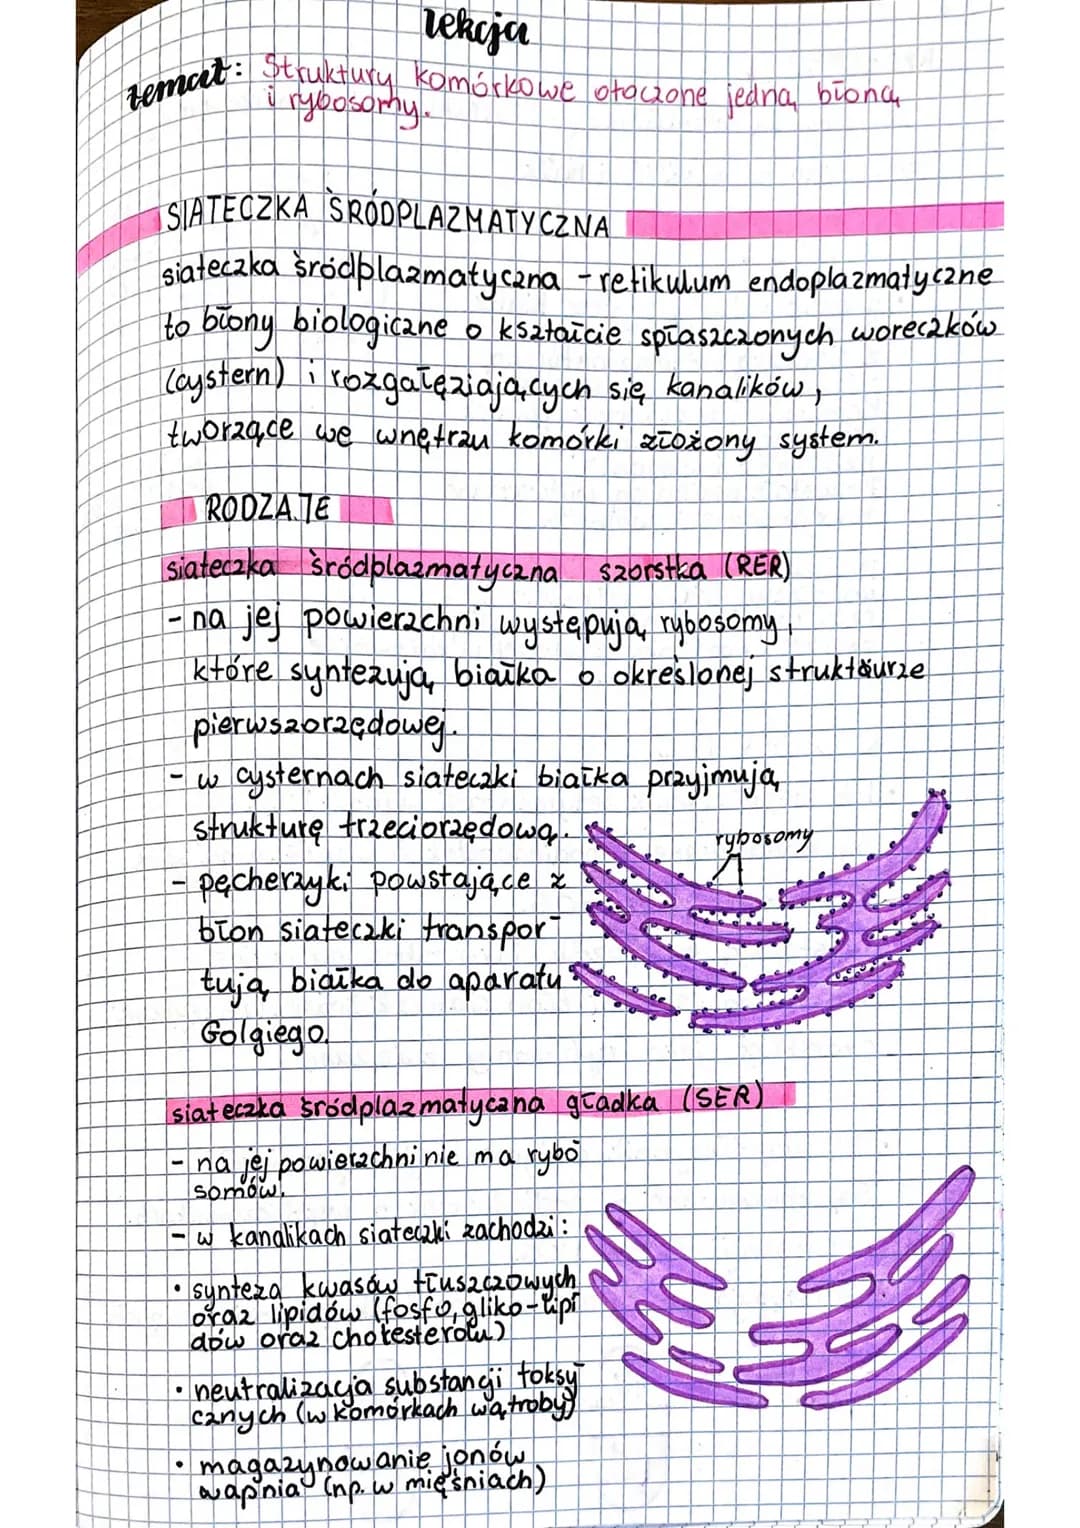 lekcja
temat: Struktury komórkowe otoczone jedną błoną
i rybosomy.
SIATECZKA ŚRÓDPLAZMATYCZNA
siateczka śródplazmatyczna - retikulum endoplazmatyczne
to błony biologiczne o kształcie spłaszczonych woreczków
(cystern) i rozgałęziających się kanalików,
tworzące we wnętrzu komórki złożony system.
RODZAJE
siateczka śródplazmatyczna szorstka (RER)
- na jej powierzchni występują rybosomy,
które syntezują białka o określonej strukturze
pierwszorzędowej.
- w cysternach siateczki białka przyjmują
strukturę trzeciorzędową.
rybosomy
- pęcherzyki powstające z
błon siateczki transpor-
tują białka do aparatu
Golgiego.
siateczka śródplazmatyczna gładka (SER)
- na jej powierzchni nie ma rybo-
somów.
- w kanalikach siateczki zachodzi:
• synteza kwasów tłuszczowych
oraz lipidów (fosfo, gliko-lipi-
dów oraz cholesterolu)
• neutralizacja substancji toksy-
cznych (w komórkach wątroby)
• magazynowanie jonów
wapnia (np. w mięśniach)